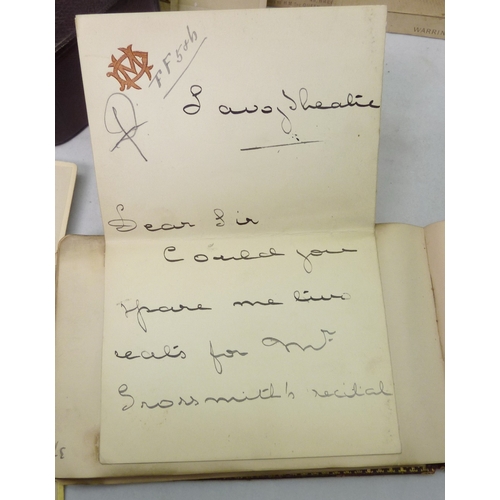 FF5&6
Savoy Theatre
Dear Sir
Could you
spare me two
seats for Mr
Grossmith's recital
WARRIN